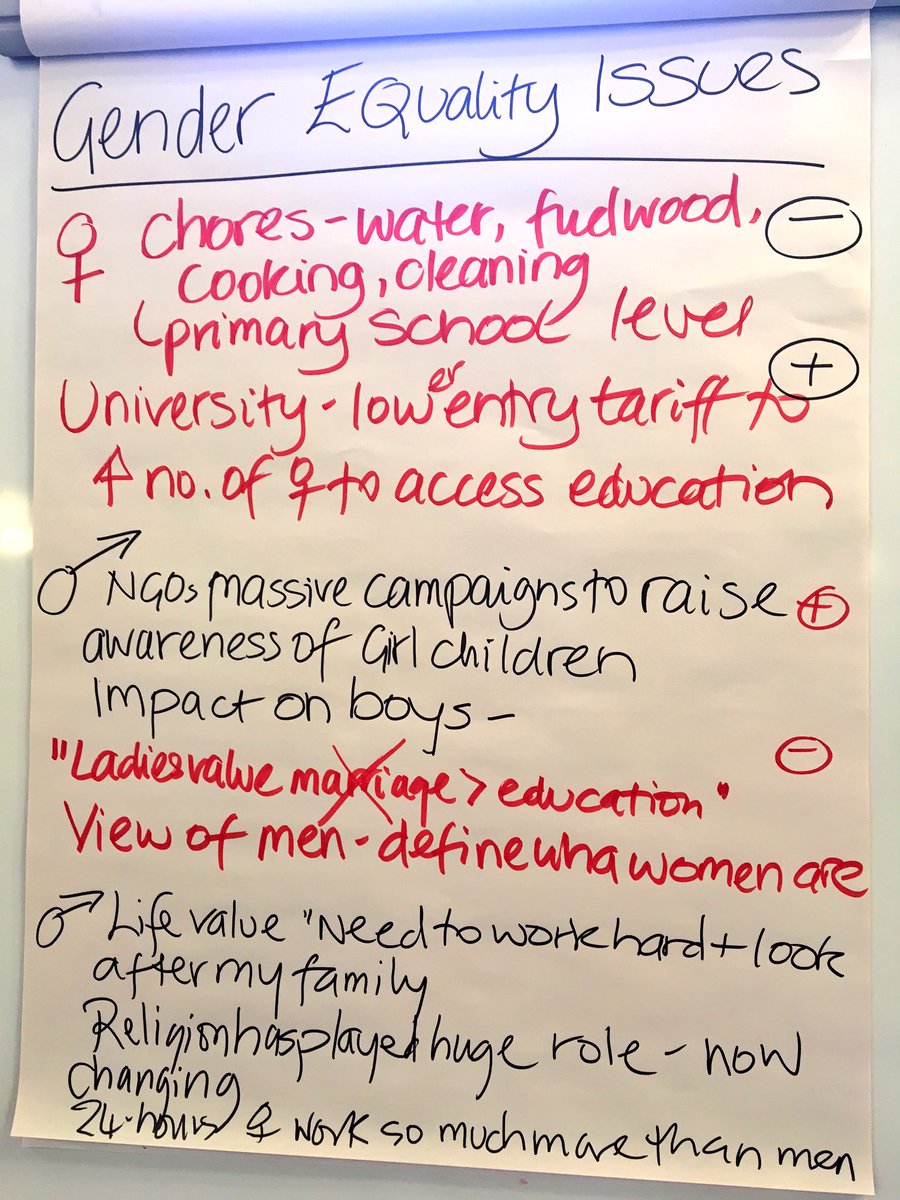 Gender EQuality Issues
♀ Chores - water, fuelwood, ⊖
cooking, cleaning
↳primary school level
⊕
University - lower entry tariff to
↑ no. of ♀ to access education
♂ NGOs massive campaigns to raise ⊕
awareness of Girl children
Impact on boys -
⊖
"Ladies value marriage > education"
View of men - define wha women are
♂ Life value "Need to work hard + look
after my family
Religion has played huge role - now
changing
24-hours ♀ work so much more than men